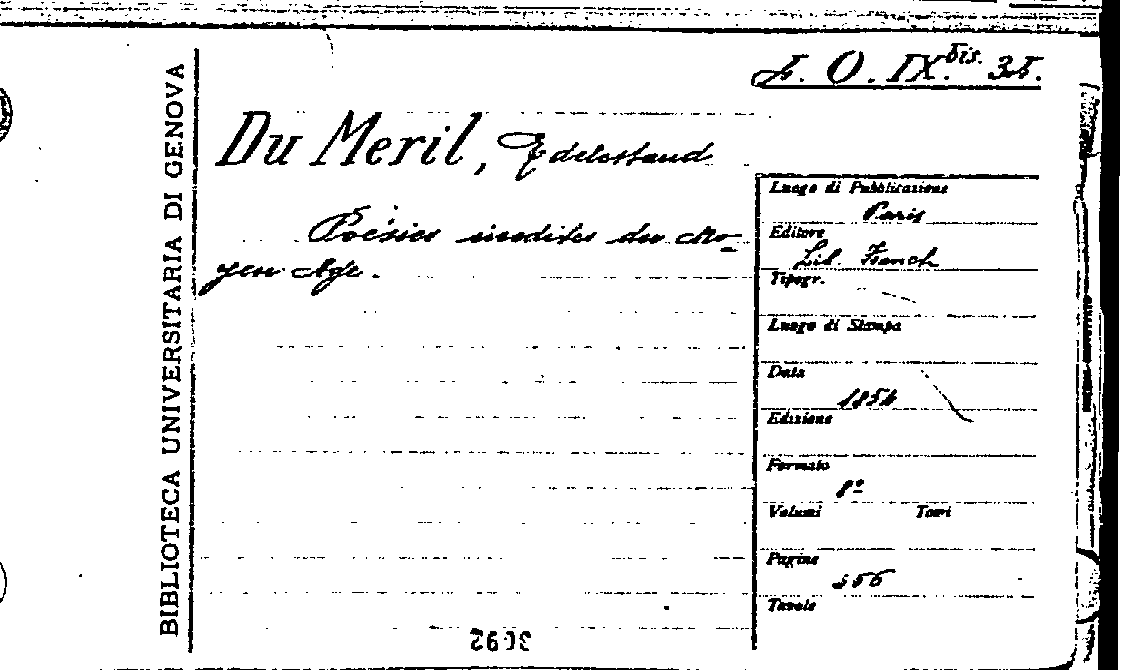 BIBLIOTECA UNIVERSITARIA DI GENOVA
L. O. IX. bis. 34.
Du Meril, Edelestand
Poésies inedites du Mo-
yen Age.
Luogo di Pubblicazione
Paris
Editore
Lib. Franch
Tipogr.
Luogo di Stampa
Data
1854
Edizione
Formato
8º
Volumi Tomi
Pagine
456
Tavole